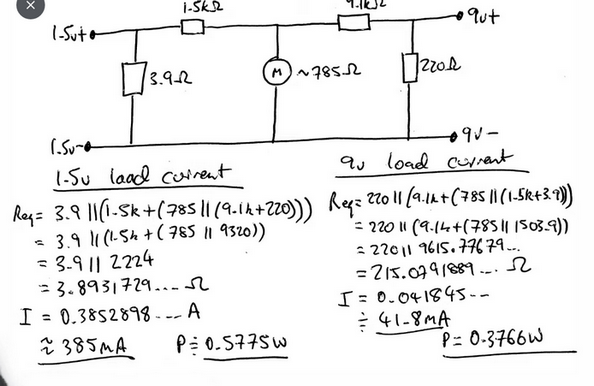 1.5kΩ
9.1kΩ
1.5v+
9v+
3.9Ω
M
~785Ω
220Ω
1.5v-
9v-
1.5v load current
Req = 3.9 || (1.5k + (785 || (9.1k + 220)))
= 3.9 || (1.5k + (785 || 9320))
= 3.9 || 2224
= 3.8931729.... Ω
I = 0.3852898.... A
≈ 385mA
P ≑ 0.5775W
9v load current
Req = 220 || (9.1k + (785 || (1.5k + 3.9)))
= 220 || (9.1k + (785 || 1503.9))
= 220 || 9615.77679...
= 215.0791889.... Ω
I = 0.041845--
≑ 41.8mA
P = 0.3766W